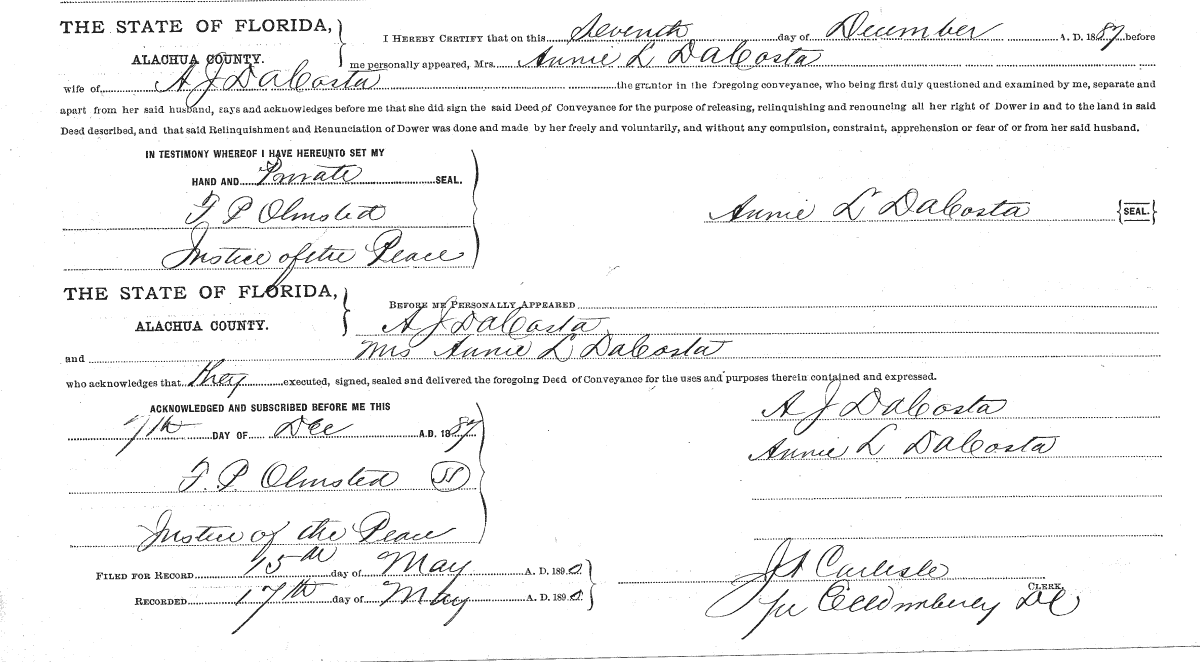 THE STATE OF FLORIDA,
ALACHUA COUNTY.
I HEREBY CERTIFY that on this Seventh day of December A. D. 1887 before
me personally appeared, Mrs. Annie L DaCosta
wife of A J DaCosta the grantor in the foregoing conveyance, who being first duly questioned and examined by me, separate and
apart from her said husband, says and acknowledges before me that she did sign the said Deed of Conveyance for the purpose of releasing, relinquishing and renouncing all her right of Dower in and to the land in said
Deed described, and that said Relinquishment and Renunciation of Dower was done and made by her freely and voluntarily, and without any compulsion, constraint, apprehension or fear of or from her said husband.
IN TESTIMONY WHEREOF I HAVE HEREUNTO SET MY
HAND AND Private SEAL.
F P Olmsted
Justice of the Peace
Annie L DaCosta {SEAL.}
THE STATE OF FLORIDA,
ALACHUA COUNTY.
BEFORE ME PERSONALLY APPEARED
A J DaCosta
and Mrs Annie L DaCosta
who acknowledges that they executed, signed, sealed and delivered the foregoing Deed of Conveyance for the uses and purposes therein contained and expressed.
ACKNOWLEDGED AND SUBSCRIBED BEFORE ME THIS
7th DAY OF Dec A.D. 1887
F. P. Olmsted
Justice of the Peace
A J DaCosta
Annie L DaCosta
FILED FOR RECORD 15th day of May A. D. 1890
RECORDED 17th day of May A. D. 1890
Carlisle
CLERK.
DC